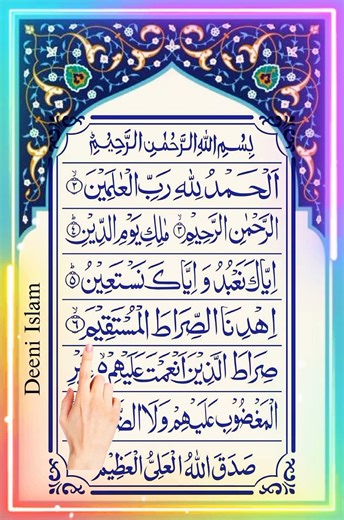 بِسْمِ اللهِ الرَّحْمٰنِ الرَّحِيْمِ
اَلْحَمْدُ لِلّٰهِ رَبِّ الْعٰلَمِيْنَ ۙ﴿٢﴾
الرَّحْمٰنِ الرَّحِيْمِ ۙ﴿٣﴾ مٰلِكِ يَوْمِ الدِّيْنِ ؕ﴿٤﴾
اِيَّاكَ نَعْبُدُ وَ اِيَّاكَ نَسْتَعِيْنُ ؕ﴿٥﴾
اِهْدِنَا الصِّرَاطَ الْمُسْتَقِيْمَ ۙ﴿٦﴾
صِرَاطَ الَّذِيْنَ اَنْعَمْتَ عَلَيْهِمْ
الْمَغْضُوْبِ عَلَيْهِمْ وَلَا
صَدَقَ اللهُ الْعَلِيُّ الْعَظِيْمُ
Deeni Islam